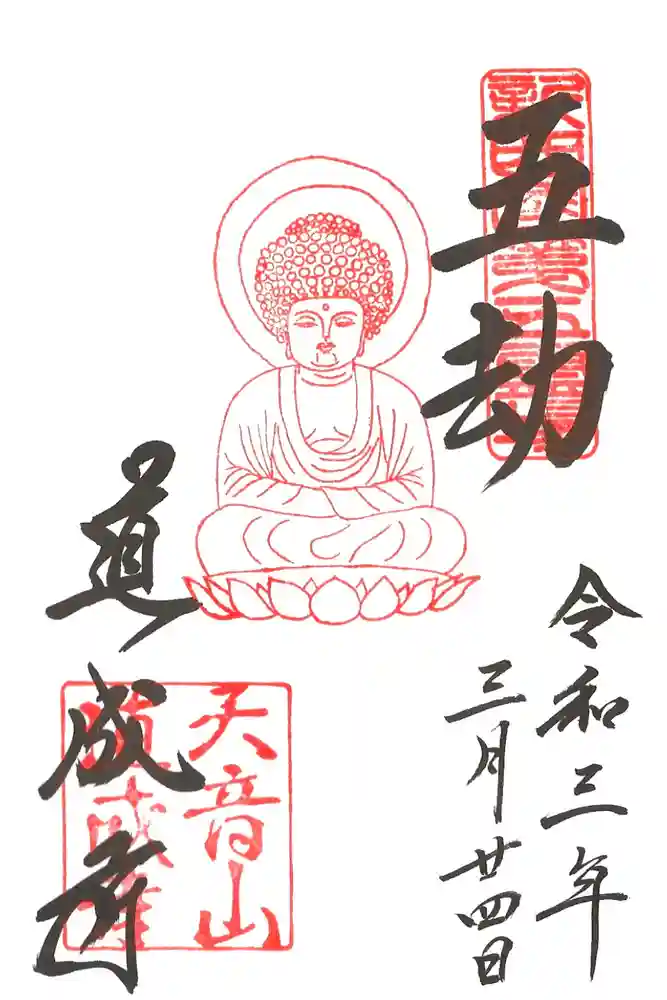 五劫
令和三年
三月廿四日
道成庵
天音山
道成庵